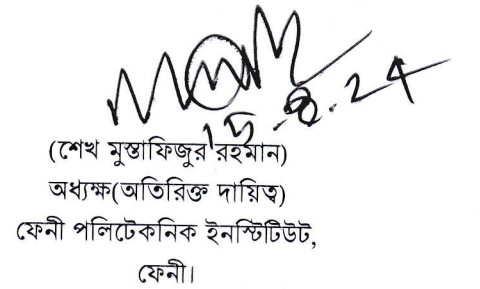 15.8.24
(শেখ মুস্তাফিজুর রহমান)
অধ্যক্ষ(অতিরিক্ত দায়িত্ব)
ফেনী পলিটেকনিক ইনস্টিটিউট,
ফেনী।